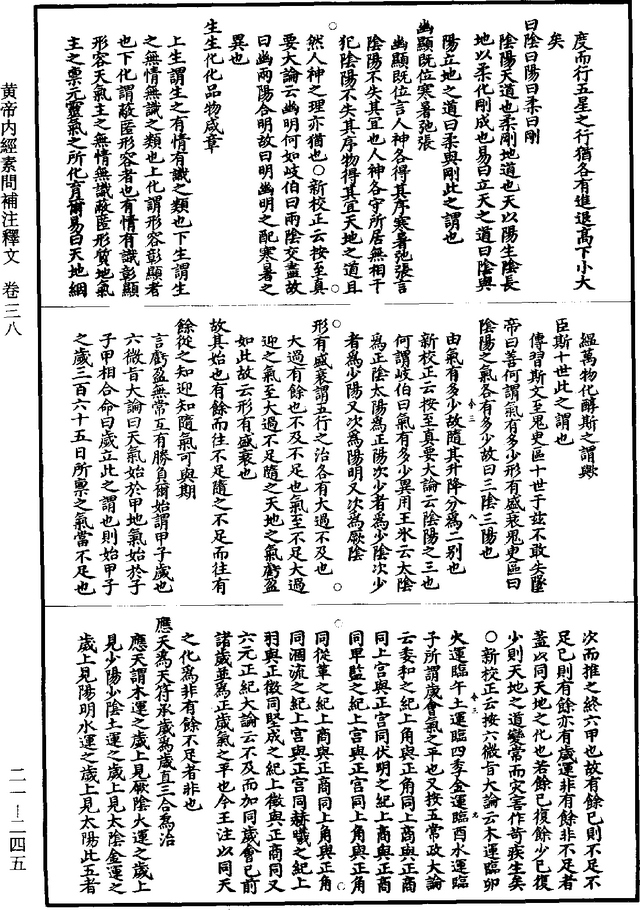 度而行五星之行猶各有進退高下小大
矣
曰陰曰陽曰柔曰剛
陰陽天道也柔剛地道也天以陽生陰長
地以柔化剛成也易曰立天之道曰陰與
陽立地之道曰柔與剛此之謂也
幽顯既位寒暑弛張
幽顯既位言人神各得其序寒暑弛張言
陰陽不失其宜也人神各守所居無相干
犯陰陽不失其序物得其宜天地之道且
然人神之理亦猶也○新校正云按至真
要大論云幽明何如岐伯曰兩陰交盡故
曰幽兩陽合明故曰明幽明之配寒暑之
異也
生生化化品物咸章
上生謂生之有情有識之類也下生謂生
之無情無識之類也上化謂形容彰顯者
也下化謂蔽匿形容者也有情有識彰顯
形容天氣主之無情無識蔽匿形質地氣
主之禀元靈氣之所化育爾易曰天地絪
縕萬物化醇斯之謂歟
臣斯十世此之謂也
傳習斯文至鬼臾區十世于兹不敢失墜
帝曰善何謂氣有多少形有盛衰鬼臾區曰
陰陽之氣各有多少故曰三陰三陽也
由氣有多少故隨其升降分為二别也
新校正云按至真要大論云陰陽之三也
何謂岐伯曰氣有多少異用王氷云太陰
為正陰太陽為正陽次少者為少陰次少
者為少陽又次為陽明又次為厥陰
形有盛衰謂五行之治各有太過不及也
大過有餘也不及不足也氣至不足大過
迎之氣至大過不足隨之天地之氣虧盈
如此故云形有盛衰也
故其始也有餘而往不足隨之不足而往有
餘從之知迎知隨氣可與期
言虧盈無常互有勝負爾始謂甲子歲也
六微旨大論曰天氣始於甲地氣始於子
子甲相合命曰歲立此之謂也則始甲子
之歲三百六十五日所禀之氣當不足也
次而推之終六甲也故有餘已則不足不
足已則有餘亦有歲運非有餘非不足者
蓋以同天地之化也若餘已復餘少已復
少則天地之道變常而災害作苛疾生矣
○新校正云按六微旨大論云木運臨卯
火運臨午土運臨四季金運臨酉水運臨
子所謂歲會氣之平也又按五常政大論
云委和之紀上角與正角同上商與正商
同上宫與正宫同伏明之紀上商與正商
同卑監之紀上宫與正宫同上角與正角
同從革之紀上商與正商同上角與正角
同涸流之紀上宫與正宫同赫曦之紀上
羽與正徵同堅成之紀上徵與正商同又
六元正紀大論云不及而加同歲會已前
諸歲並為正歲氣之平也今王注以同天
之化為非有餘不足者非也
應天為天符承歲為歲直三合為治
應天謂木運之歲上見厥陰火運之歲上
見少陽少陰土運之歲上見太陰金運之
歲上見陽明水運之歲上見太陽此五者
黄帝内經素問補注釋文 卷三八
二一—二四五